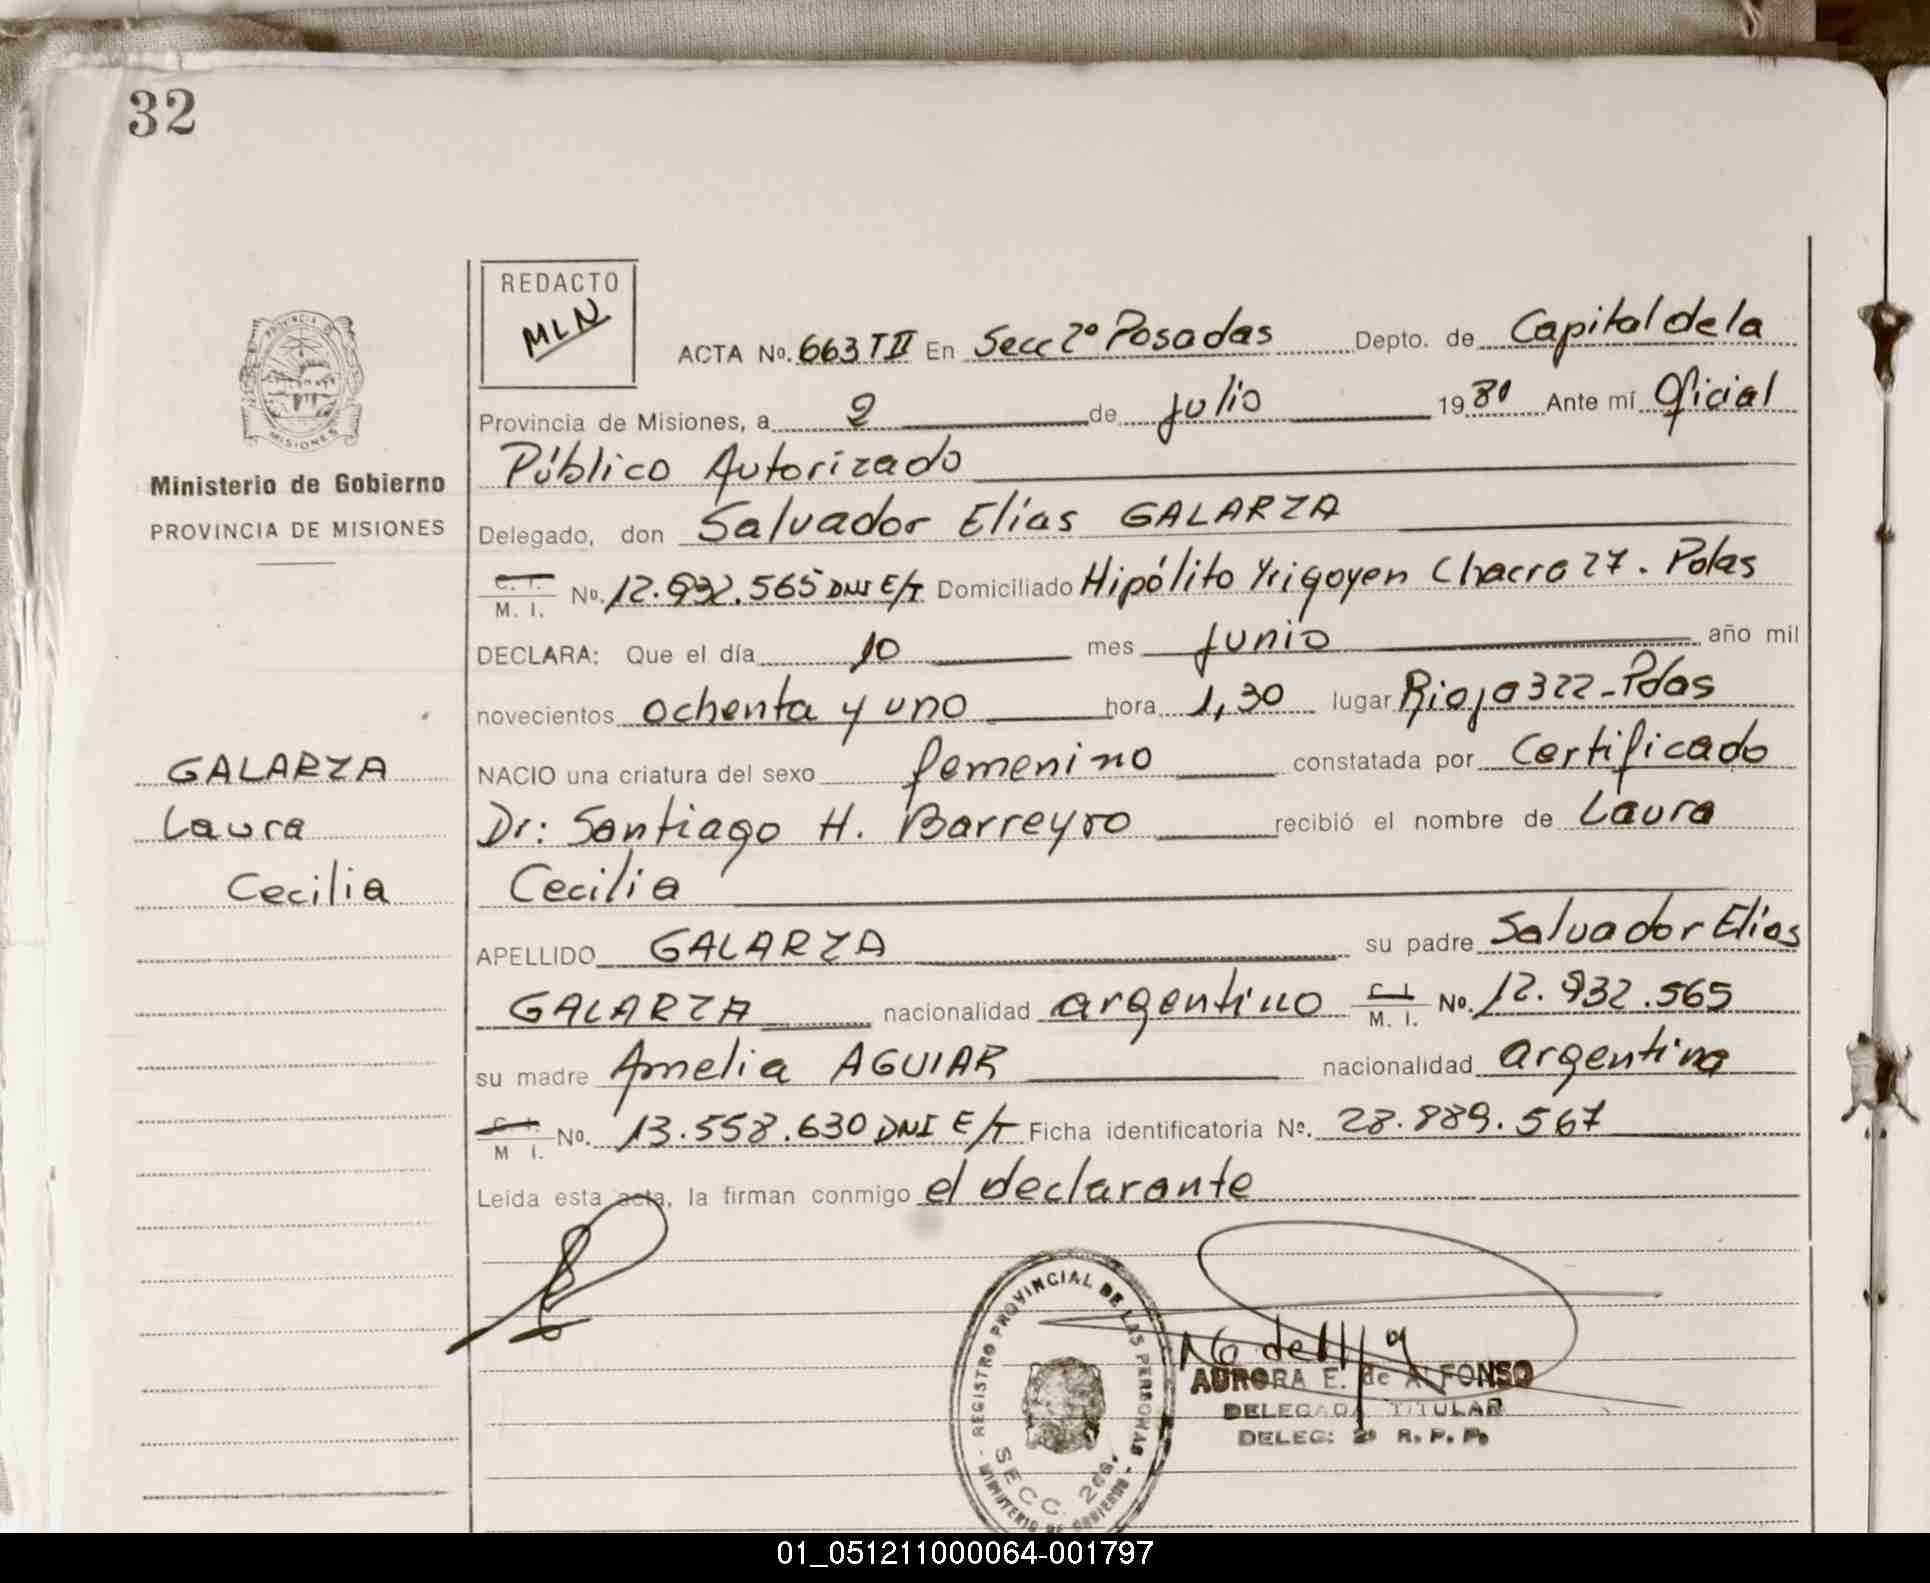 32
REDACTO
MLN
ACTA No. 663 TII En Secc 2º Posadas Depto. de Capital de la
Provincia de Misiones, a 2 de julio 1981 Ante mí Oficial
Público Autorizado
Ministerio de Gobierno
PROVINCIA DE MISIONES
Delegado, don Salvador Elías GALARZA
C. I. M. I. No. 12.932.565 DNI E/T Domiciliado Hipólito Yrigoyen Chacra 27. Pdas
DECLARA: Que el día 10 mes junio año mil
novecientos ochenta y uno hora 1,30 lugar Rioja 322 - Pdas
GALARZA
Laura
Cecilia
NACIO una criatura del sexo femenino constatada por Certificado
Dr: Santiago H. Barreyro recibió el nombre de Laura
Cecilia
APELLIDO GALARZA su padre Salvador Elías
GALARZA nacionalidad argentino C. I. M. I. No. 12.932.565
su madre Amelia AGUIAR nacionalidad argentina
C. I. M. I. No. 13.558.630 DNI E/T Ficha identificatoria No. 28.889.567
Leída esta acta, la firman conmigo el declarante
REGISTRO PROVINCIAL DE LAS PERSONAS
MINISTERIO DE GOBIERNO
SECC. 2da.
AURORA E. de ALFONSO
DELEGADA TITULAR
DELEG: 2ª R. P. P.
01_051211000064-001797